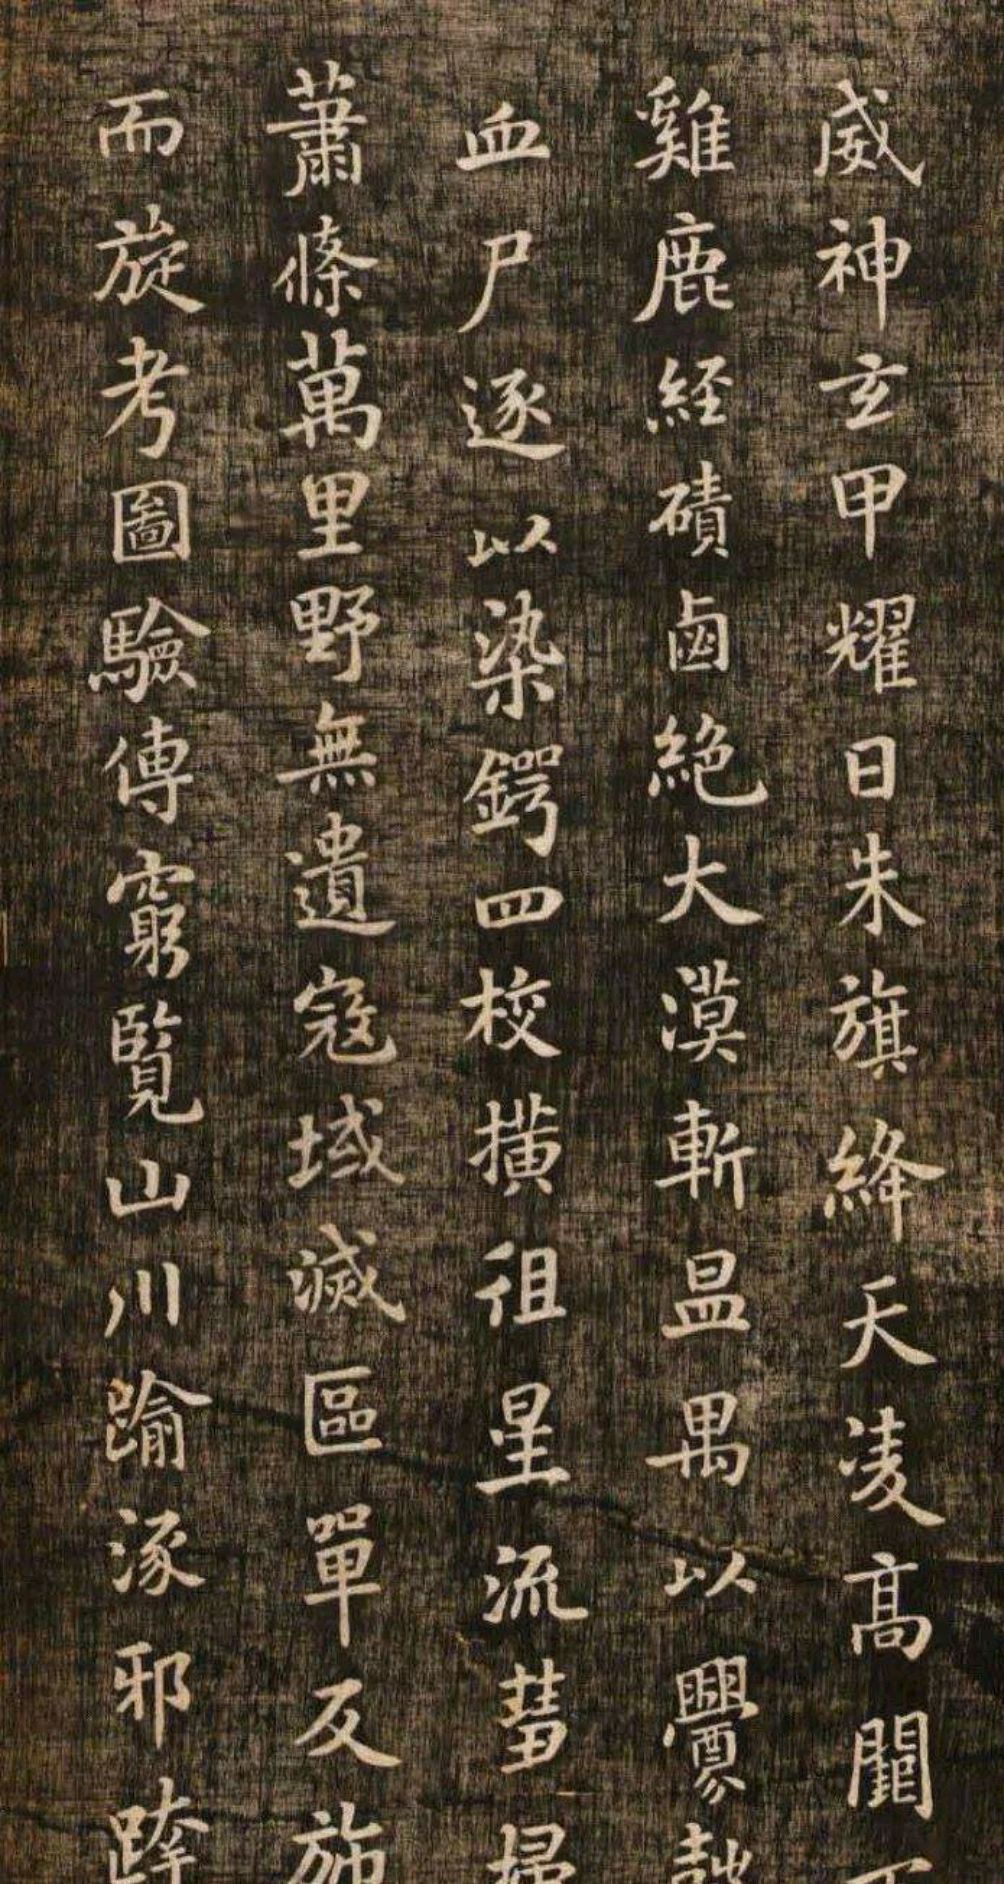 威神玄甲耀日朱旗絳天淩高闕下
雞鹿經磧鹵絕大漠斬昷禺以釁鼓
血尸逐以染鍔四校横徂星流彗掃
蕭條萬里野無遺寇域滅區單反旆
而旋考圖驗傳窮覽山川踰涿邪跨